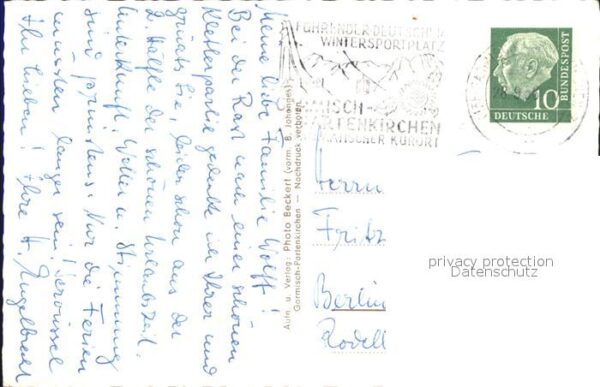 Meine liebe Familie Wolff!
Bei der Rast nach einer schönen
Kletterpartie gedenke ich Ihrer und
grüße Sie, leider schon aus der
2. Hälfte der schönen Urlaubszeit.
Unterkunft, Wetter u. Stimmung
sind prima. Nur die Ferien
müssten länger sein! Servus
Ihr Lieben! Ihre H. Engelbrecht
Aufn. u. Verlag: Photo Beckert (vorm. B. Johannes)
Garmisch-Partenkirchen – Nachdruck verboten
FÜHRENDER DEUTSCHER
WINTERSPORTPLATZ
MISCH-
PARTENKIRCHEN
KLIMATISCHER KURORT
10
DEUTSCHE
BUNDESPOST
Herrn
Fritz
Berlin
Rodell
privacy protection
Datenschutz